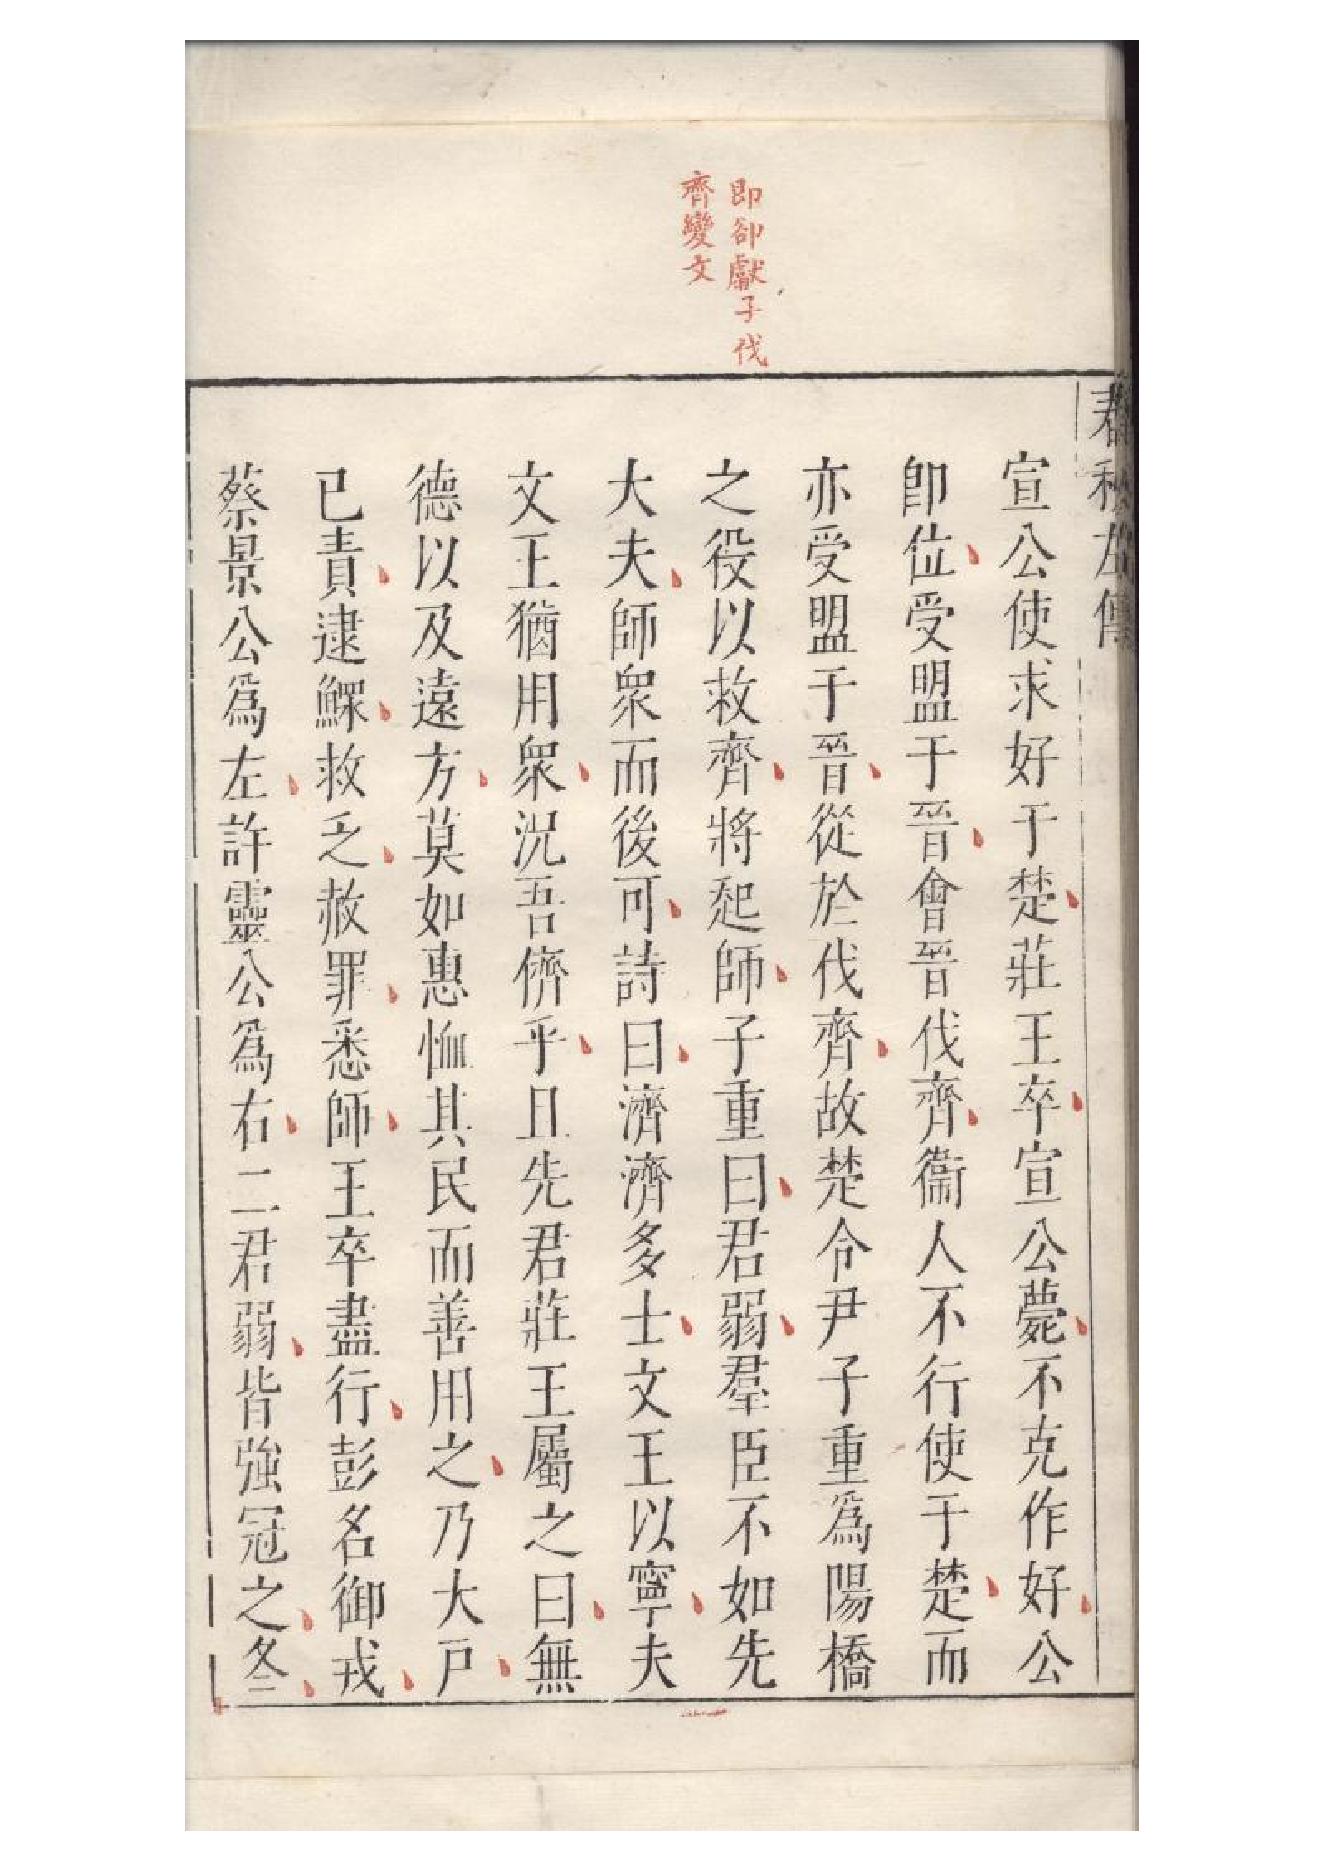 即郤獻子伐
齊變文
春秋左傳
宣公使求好于楚莊王卒宣公薨不克作好公
卽位受盟于晉會晉伐齊衞人不行使于楚而
亦受盟于晉從於伐齊故楚令尹子重爲陽橋
之役以救齊將起師子重曰君弱羣臣不如先
大夫師眾而後可詩曰濟濟多士文王以寧夫
文王猶用眾況吾儕乎且先君莊王屬之曰無
德以及遠方莫如惠恤其民而善用之乃大戸
已責逮鰥救乏赦罪悉師王卒盡行彭名御戎
蔡景公爲左許靈公爲右二君弱皆強冠之冬